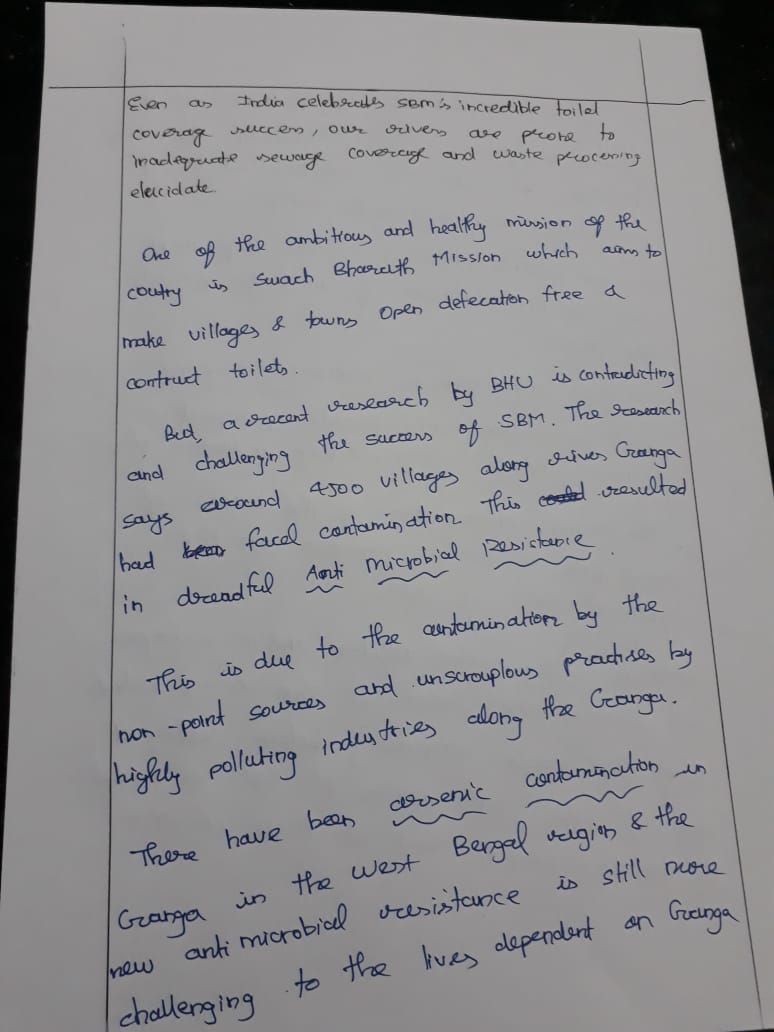 Even as India celebrates SBM's incredible toilet
coverage success, our rivers are prone to
inadequate sewage coverage and waste processing
elucidate.
One of the ambitious and healthy mission of the
coutry is Swach Bharath Mission which aims to
make villages & towns Open defecation free &
contruct toilets.
But, a recent research by BHU is contradicting
and challenging the success of SBM. The research
says around 4500 villages along river Ganga
had been facel contamination This could resulted
in dreadful Anti microbial Resistance.
This is due to the contamination by the
non-point sources and unscrouplous practises by
highly polluting industries along the Ganga.
There have been arsenic contamination in
Ganga in the West Bengal region & the
new anti microbial resistance is still more
challenging to the lives dependent on Ganga